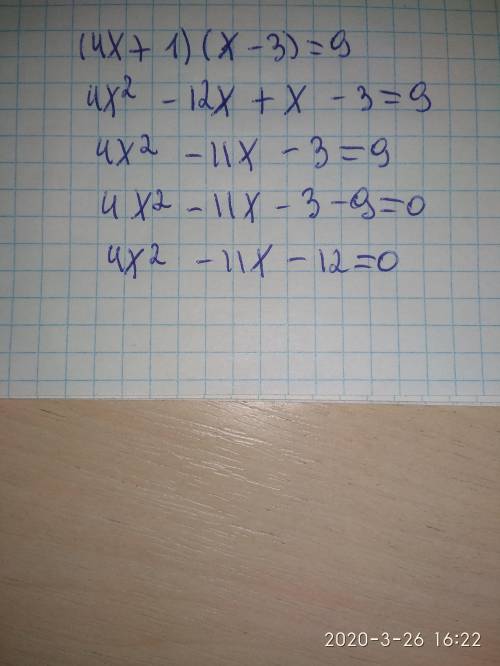 (4x + 1)(x - 3) = 9
4x² - 12x + x - 3 = 9
4x² - 11x - 3 = 9
4x² - 11x - 3 - 9 = 0
4x² - 11x - 12 = 0
2020-3-26 16:22